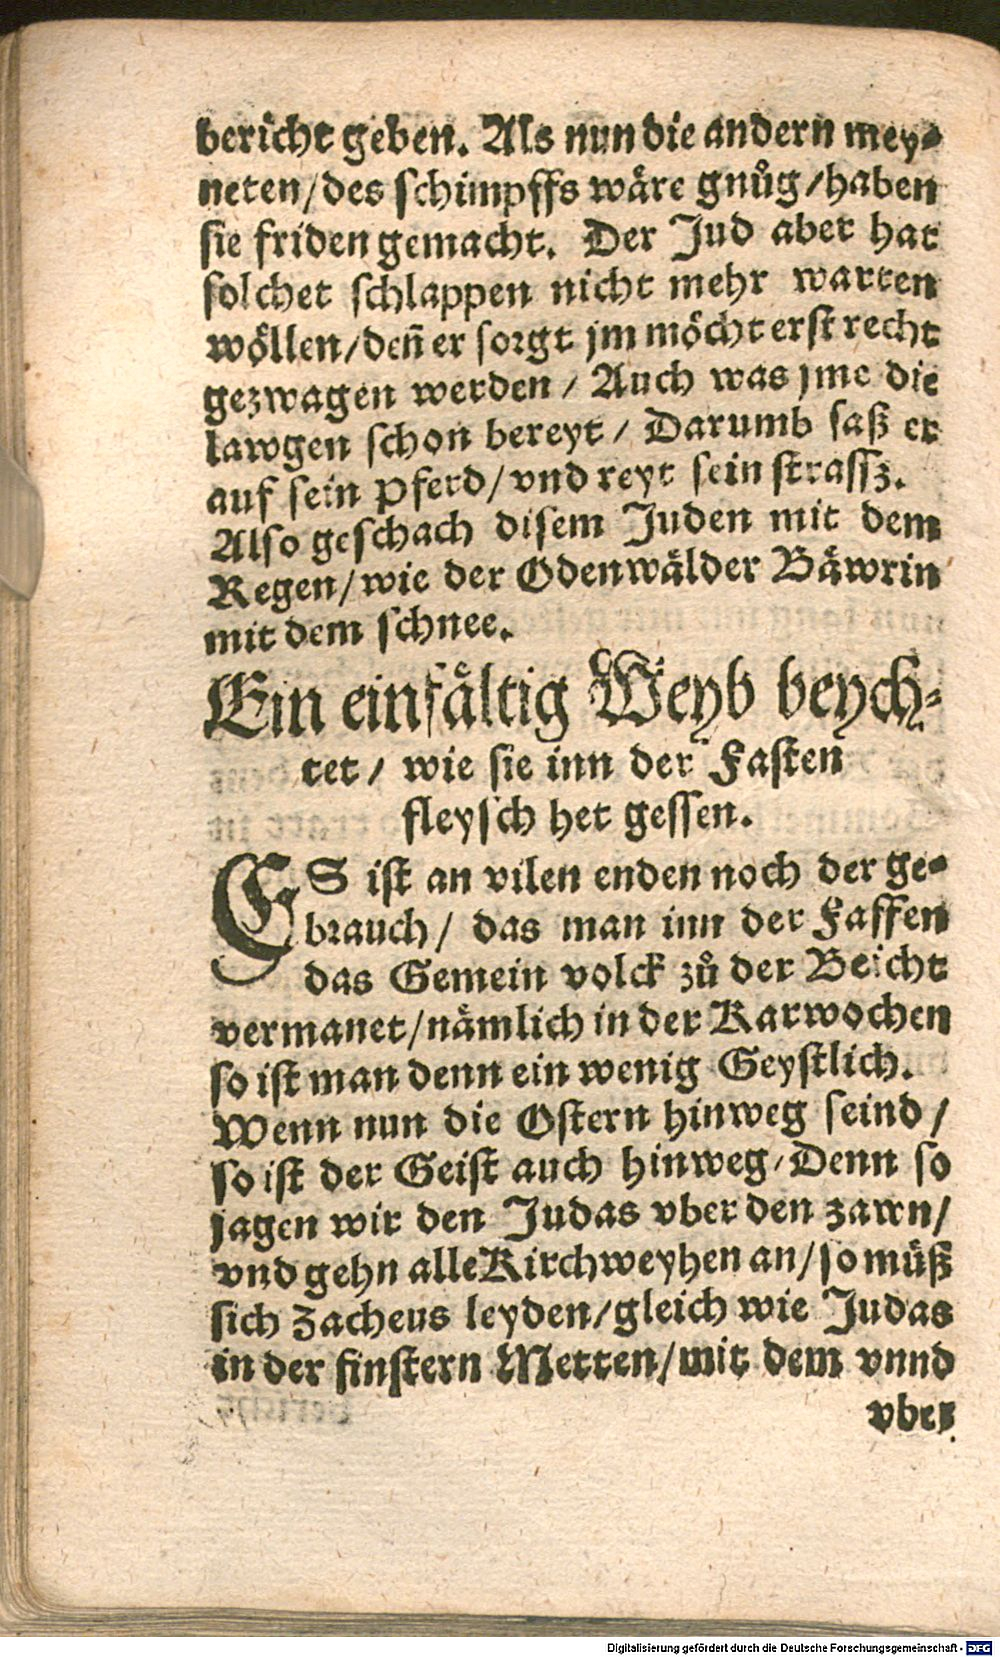 bericht geben. Als nun die andern mey⸗
neten/des schimpffs wäre gnůg/haben
sie friden gemacht. Der Jud aber hat
solcher schlappen nicht mehr warten
wöllen/deñ er sorgt jm möcht erst recht
gezwagen werden / Auch was jme die
lawgen schon bereyt / Darumb saß er
auf sein Pferd/vnd reyt sein strassz.
Also geschach disem Juden mit dem
Regen/wie der Odenwälder Bäwrin
mit dem schnee.
Ein einfältig Weyb beych⸗
tet / wie sie inn der Fasten
fleysch het gessen.
ES ist an vilen enden noch der ge⸗
brauch / das man inn der Fassen
das Gemein volck zů der Beicht
vermanet/nämlich in der Karwochen
so ist man denn ein wenig Geystlich.
Wenn nun die Ostern hinweg seind /
so ist der Geist auch hinweg/Denn so
jagen wir den Judas vber den zawn/
vnd gehn alle Kirchweyhen an/so můß
sich Zacheus leyden/gleich wie Judas
in der finstern Metten/mit dem vnnd
vber
Digitalisierung gefördert durch die Deutsche Forschungsgemeinschaft - DFG